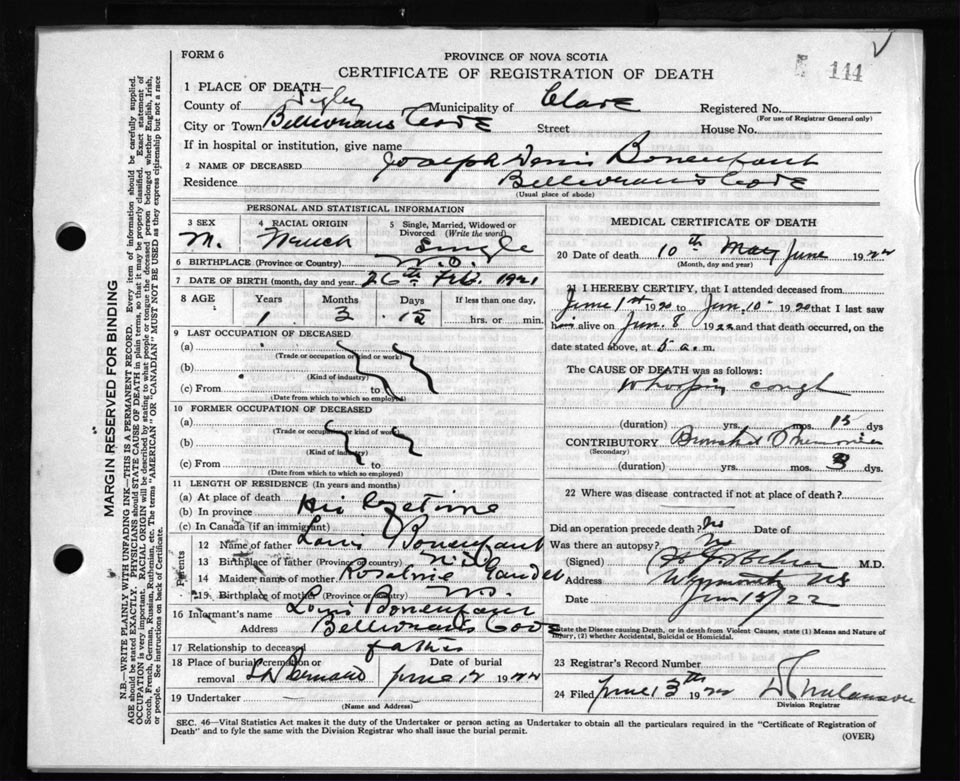 FORM 6
PROVINCE OF NOVA SCOTIA
CERTIFICATE OF REGISTRATION OF DEATH
144
1 PLACE OF DEATH—
County of Digby Municipality of Clare Registered No.
(For use of Registrar General only)
City or Town Belliveaus Cove Street House No.
If in hospital or institution, give name
2 NAME OF DECEASED Joseph Denis Bonenfant
Residence Belliveaus Cove
(Usual place of abode)
PERSONAL AND STATISTICAL INFORMATION
3 SEX 4 RACIAL ORIGIN 5 Single, Married, Widowed or Divorced (Write the word)
M. French Single
6 BIRTHPLACE (Province or Country) N.S.
7 DATE OF BIRTH (month, day and year) 26th Feb. 1921
8 AGE Years Months Days If less than one day,
1 3 15 hrs. or min.
9 LAST OCCUPATION OF DECEASED
(a)
(Trade or occupation or kind of work)
(b)
(Kind of industry)
(c) From to
(Date from which to which so employed)
10 FORMER OCCUPATION OF DECEASED
(a)
(Trade or occupation or kind of work)
(b)
(Kind of industry)
(c) From to
(Date from which to which so employed)
11 LENGTH OF RESIDENCE (In years and months)
(a) At place of death
(b) In province His lifetime
(c) In Canada (if an immigrant)
Parents
12 Name of father Louis Bonenfant
13 Birthplace of father (Province or Country) N.S.
14 Maiden name of mother Rosaline
15 Birthplace of mother (Province or Country) N.S.
16 Informant's name Louis Bonenfant
Address Belliveaus Cove
17 Relationship to deceased father
18 Place of burial, cremation or removal St Bernard Date of burial June 12 1922
19 Undertaker
(Name and Address)
MEDICAL CERTIFICATE OF DEATH
20 Date of death 10th May June 1922
(Month, day and year)
21 I HEREBY CERTIFY, that I attended deceased from
June 1st 1920 to Jun. 10 1920 that I last saw
him alive on Jun. 8 1922 and that death occurred, on the
date stated above, at 5 a. m.
The CAUSE OF DEATH was as follows:
Whooping cough
(duration) yrs. mos. 15 dys
CONTRIBUTORY Bronchial Pneumonia
(Secondary)
(duration) yrs. mos. 3 dys.
22 Where was disease contracted if not at place of death?
Did an operation precede death? No Date of
Was there an autopsy? No
(Signed) M.D.
Address Weymouth NS
Date Jun 13/22
State the Disease causing Death, or in death from Violent Causes, state (1) Means and Nature of
Injury, (2) whether Accidental, Suicidal or Homicidal.
23 Registrar's Record Number
24 Filed June 13th 1922
Division Registrar
SEC. 46—Vital Statistics Act makes it the duty of the Undertaker or person acting as Undertaker to obtain all the particulars required in the "Certificate of Registration of
Death" and to fyle the same with the Division Registrar who shall issue the burial permit.
(OVER)
MARGIN RESERVED FOR BINDING
N.B.—WRITE PLAINLY WITH UNFADING INK—THIS IS A PERMANENT RECORD. Every item of information should be carefully supplied.
AGE should be stated EXACTLY. PHYSICIANS should STATE CAUSE OF DEATH in plain terms, so that it may be properly classified. Exact statement of
OCCUPATION is very important. RACIAL ORIGIN will be described by stating to what people or tongue the deceased person belonged whether English, Irish,
Scotch, French, German, Russian, Ruthenian, etc. The terms "AMERICAN" or "CANADIAN" MUST NOT BE USED as they express citizenship but not a race
or people. See instructions on back of Certificate.